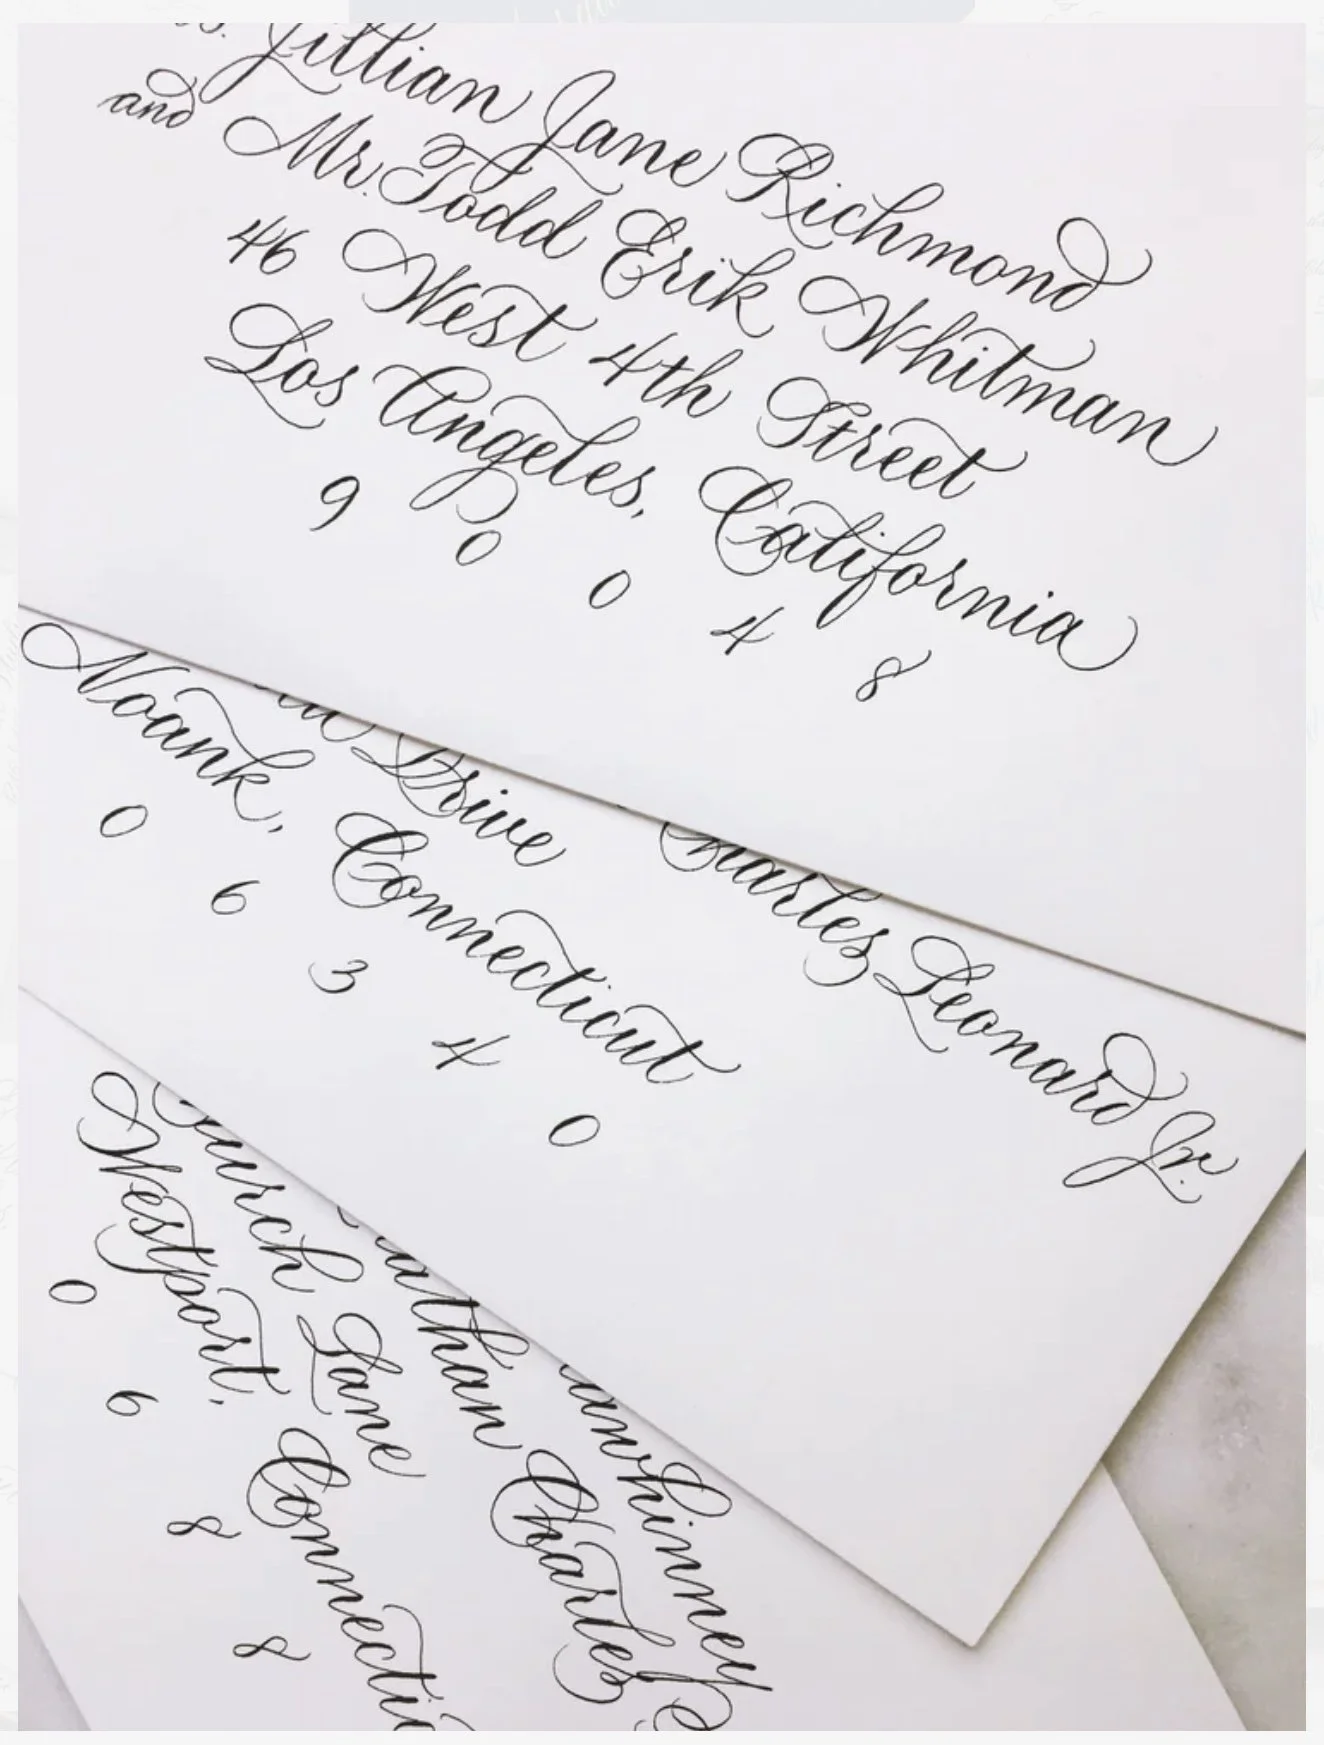 Jillian Jane Richmond
and Mr. Todd Erik Whitman
46 West 4th Street
Los Angeles, California
9 0 0 4 8
Charles Leonard Jr.
Drive
Noank, Connecticut
0 6 3 4 0
Charles
Lane
Westport,
0 6 8 8